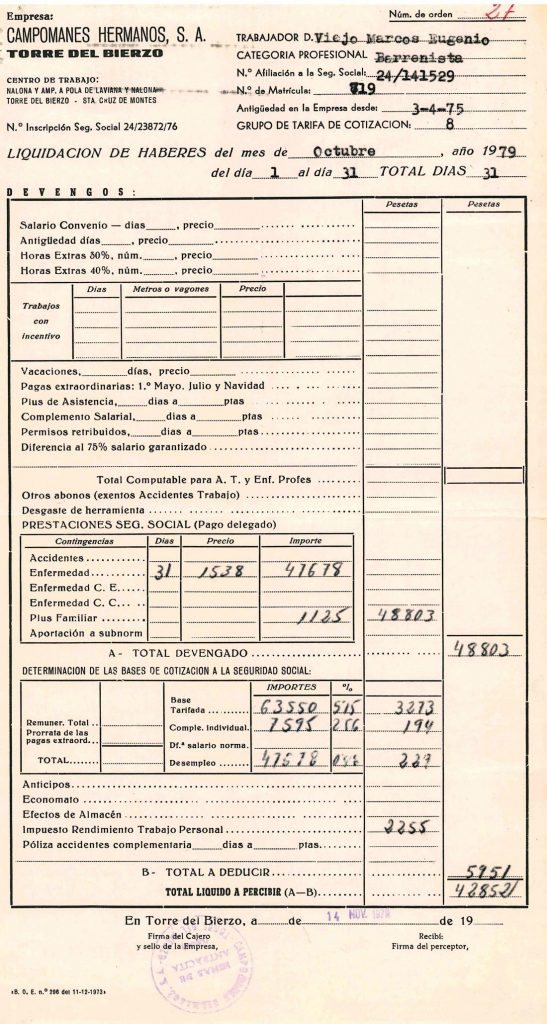 Empresa:
CAMPOMANES HERMANOS, S. A.
TORRE DEL BIERZO
CENTRO DE TRABAJO:
NALONA Y AMP. A POLA DE LAVIANA Y NALONA
TORRE DEL BIERZO - STA CRUZ DE MONTES
N.º Inscripción Seg. Social 24/23872/76
Núm. de orden 27
TRABAJADOR D. Viejo Marcos Eugenio
CATEGORIA PROFESIONAL Barrenista
N.º Afiliación a la Seg. Social: 24/141529
N.º de Matrícula: 719
Antigüedad en la Empresa desde: 3-4-75
GRUPO DE TARIFA DE COTIZACION: 8
LIQUIDACION DE HABERES del mes de Octubre, año 1979
del día 1 al día 31 TOTAL DIAS 31
DEVENGOS:
Pesetas Pesetas
Salario Convenio — días, precio
Antigüedad días, precio
Horas Extras 50%, núm., precio
Horas Extras 40%, núm., precio
Días Metros o vagones Precio
Trabajos
con
incentivo
Vacaciones, días, precio
Pagas extraordinarias: 1.º Mayo. Julio y Navidad
Plus de Asistencia, días a ptas
Complemento Salarial, días a ptas
Permisos retribuidos, días a ptas
Diferencia al 75% salario garantizado
Total Computable para A. T. y Enf. Profes
Otros abonos (exentos Accidentes Trabajo)
Desgaste de herramienta
PRESTACIONES SEG. SOCIAL (Pago delegado)
Contingencias Días Precio Importe
Accidentes
Enfermedad 31 1538 47678
Enfermedad C. E.
Enfermedad C. C.
Plus Familiar 1125 48803
Aportación a subnorm
A - TOTAL DEVENGADO 48803
DETERMINACION DE LAS BASES DE COTIZACION A LA SEGURIDAD SOCIAL:
IMPORTES %
Base
Tarifada 63550 5'15 3273
Remuner. Total
Comple. individual. 7595 2'56 194
Prorrata de las
pagas extraord.
Df.ª salario norma.
TOTAL
Desempleo 47678 229
Anticipos
Economato
Efectos de Almacén
Impuesto Rendimiento Trabajo Personal 2255
Póliza accidentes complementaria días a ptas.
B - TOTAL A DEDUCIR 5951
TOTAL LIQUIDO A PERCIBIR (A—B) 42852
En Torre del Bierzo, a de 14 NOV. 1979 de 19
Firma del Cajero
y sello de la Empresa,
Recibí:
Firma del perceptor,
MINAS DE
ANTRACITA
«B. O. E. n.º 296 del 11-12-1973»